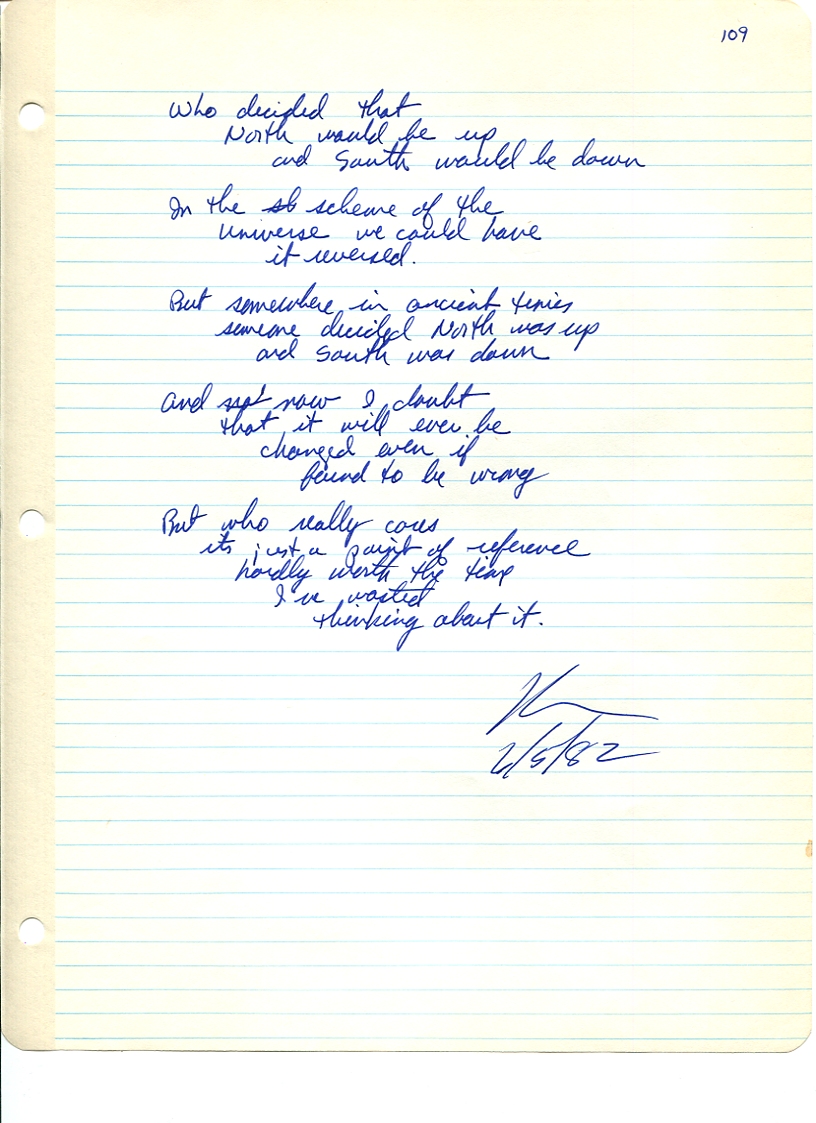 109
Who decided that
North would be up
and South would be down
In the sb scheme of the
Universe we could have
it reversed.
But somewhere in ancient times
someone decided North was up
and South was down
And now I doubt
that it will ever be
changed even if
found to be wrong
But who really cares
its just a point of reference
hardly worth the time
I've wasted
thinking about it.
2/5/82